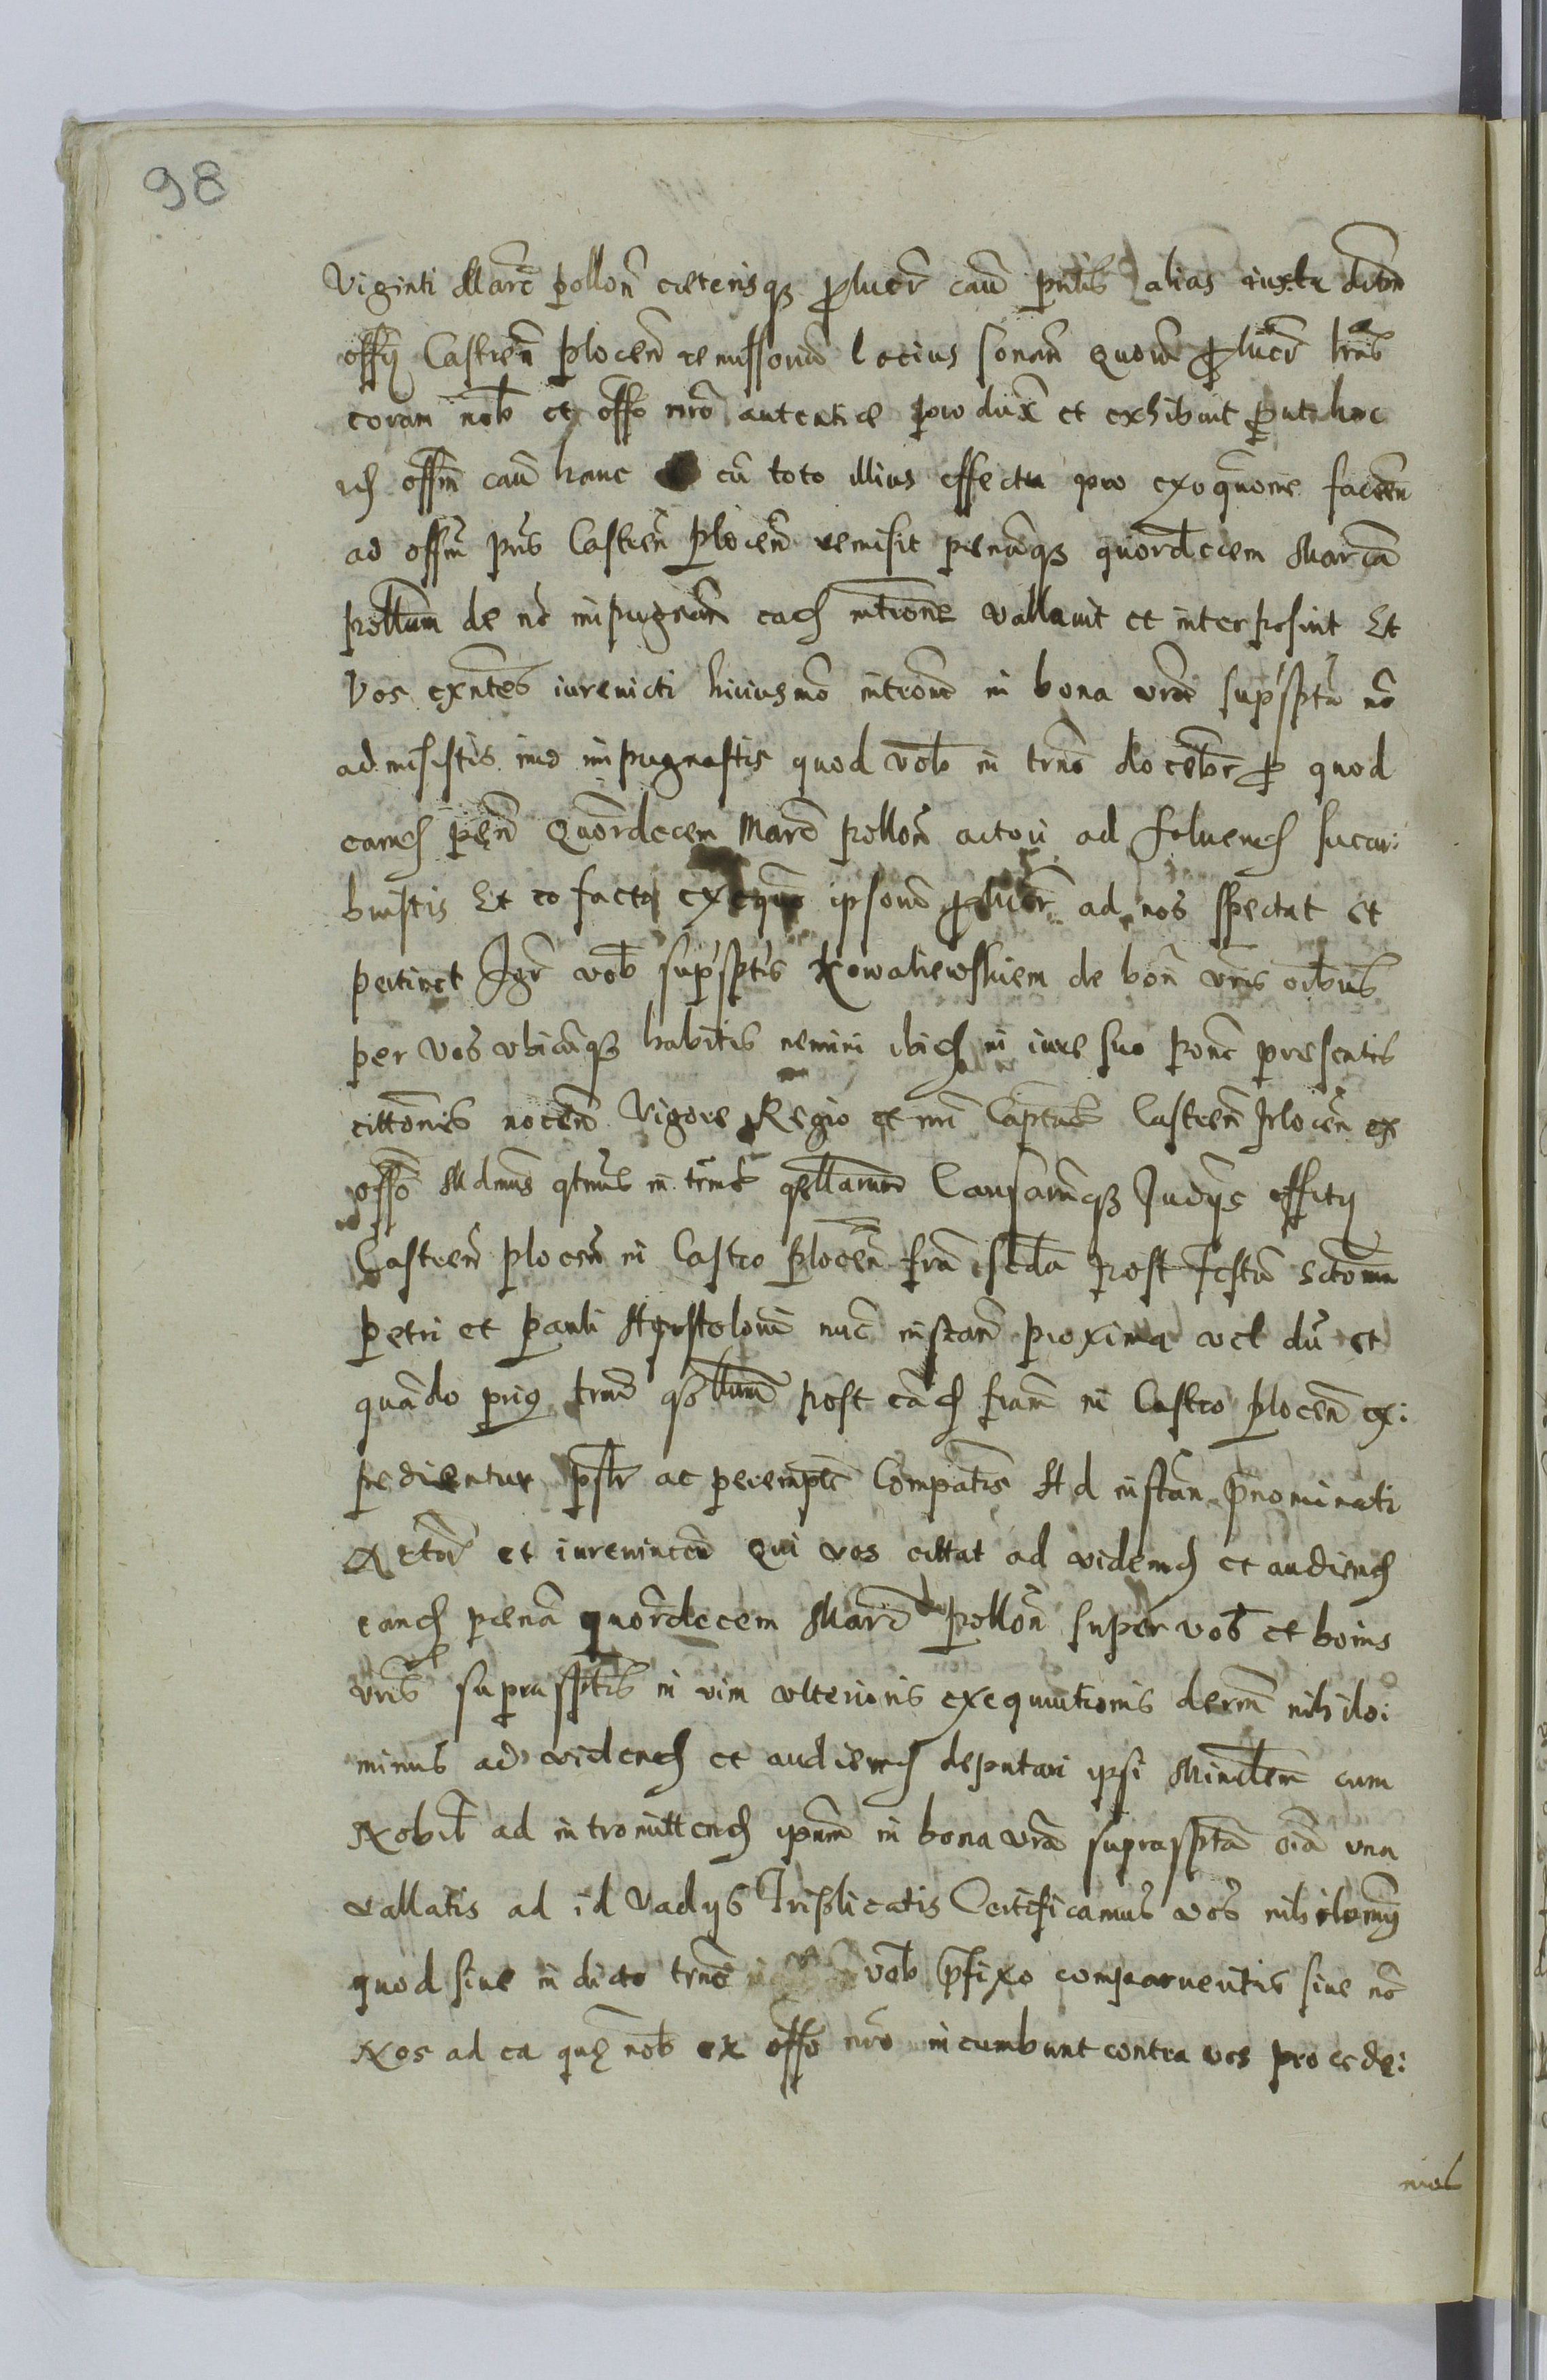 98
Viginti Marc̃ pollon̄ cæterisq̃ p̱lucr̃ cau̅ pn̅tis alias iuxta
offy Castren̄ plocen̄ remissoriu̅ locius sonan̄ quoru̅ p̱lucr̃ lr̃as
coram nob̅ et offo nr̃o autentice produx̃ et exhibuit prout hoc
id̃ offm̅ cau̅ hanc cu̅ toto illius effectu pro exequn̅one facien̄
ad offm̅ pn̅s Castren̄ plocen̄ remisit penãq̃ quordecem Marcã
pollum̅ de no̅ impugnan̄ ead̃ intrõne vallauit et interposuit Et
Vos exn̅tes iurevicti hiiusmõ intrõne̅ in bona vr̃a sup̱sptã no̅
admisistis imo impugnastis quod vob̅ in trn̅o docebr̃ p̱ quod
eamd̃ pen̄ Quordecem Marc̃ pollon̄ actori ad soluend̃ sucur:
buistis Et eo facto exequn̅o ipsoru̅ p̱lucr̃ ad nos spectat et
pertinet Igr̃ vob̅ sup̱sptis Kowaliewskiem de bon̄ vr̃is oi̅bus
per Vos vbicũq̃ habitis nemini ibid̃ in iure suo ponc̃ presentis
cittõnis nocen̄ Vigore Regio et mei Captus̃ Castren̄ plocen̄ ex
offõ Mdmus qtnus̃ in trm̅s qrellarum̅ Causarũq̃ Judys officy
Castren̄ plocen̄ in Castro plocen̄ fria scd̃a post festu̅ Sctorum̅
petri et pauli Apostoloru̅ nuc̃ instan̄ proxima vel du̅ et
quãdo prius trm̅i qrellum̅ post eãd̃ friam̅ in Castro plocen̄ ex:
pedientur pslr̃ ac peremptẽ Compatis̃ Ad instan̄ prnominati
Actor̃ et iurevincen̄ Qui vos cittat ad videnđ et audienđ
eand̃ penã quordecem Marc̃ pollon̄ super vos et boins
vr̃is suprasptis̃ in vim vlterioris exequutionis decrni̅ nihilo:
minus ad videnđ et audienđ deputari ipsi Minrlem̃ cum
Nobil̃ ad intromittenđ ipsum̅ in bona vr̃a suprasptã oi̅a vna
vallatis ad id Vadys Triplicatis Certificamus vos nihilominꝰ
quod siue in dicto trn̅o vob̅ prfixo comparueritis siue no̅
Nos ad ea quę nob̅ ex offo nr̃o incumbunt contra vos procede:
mus